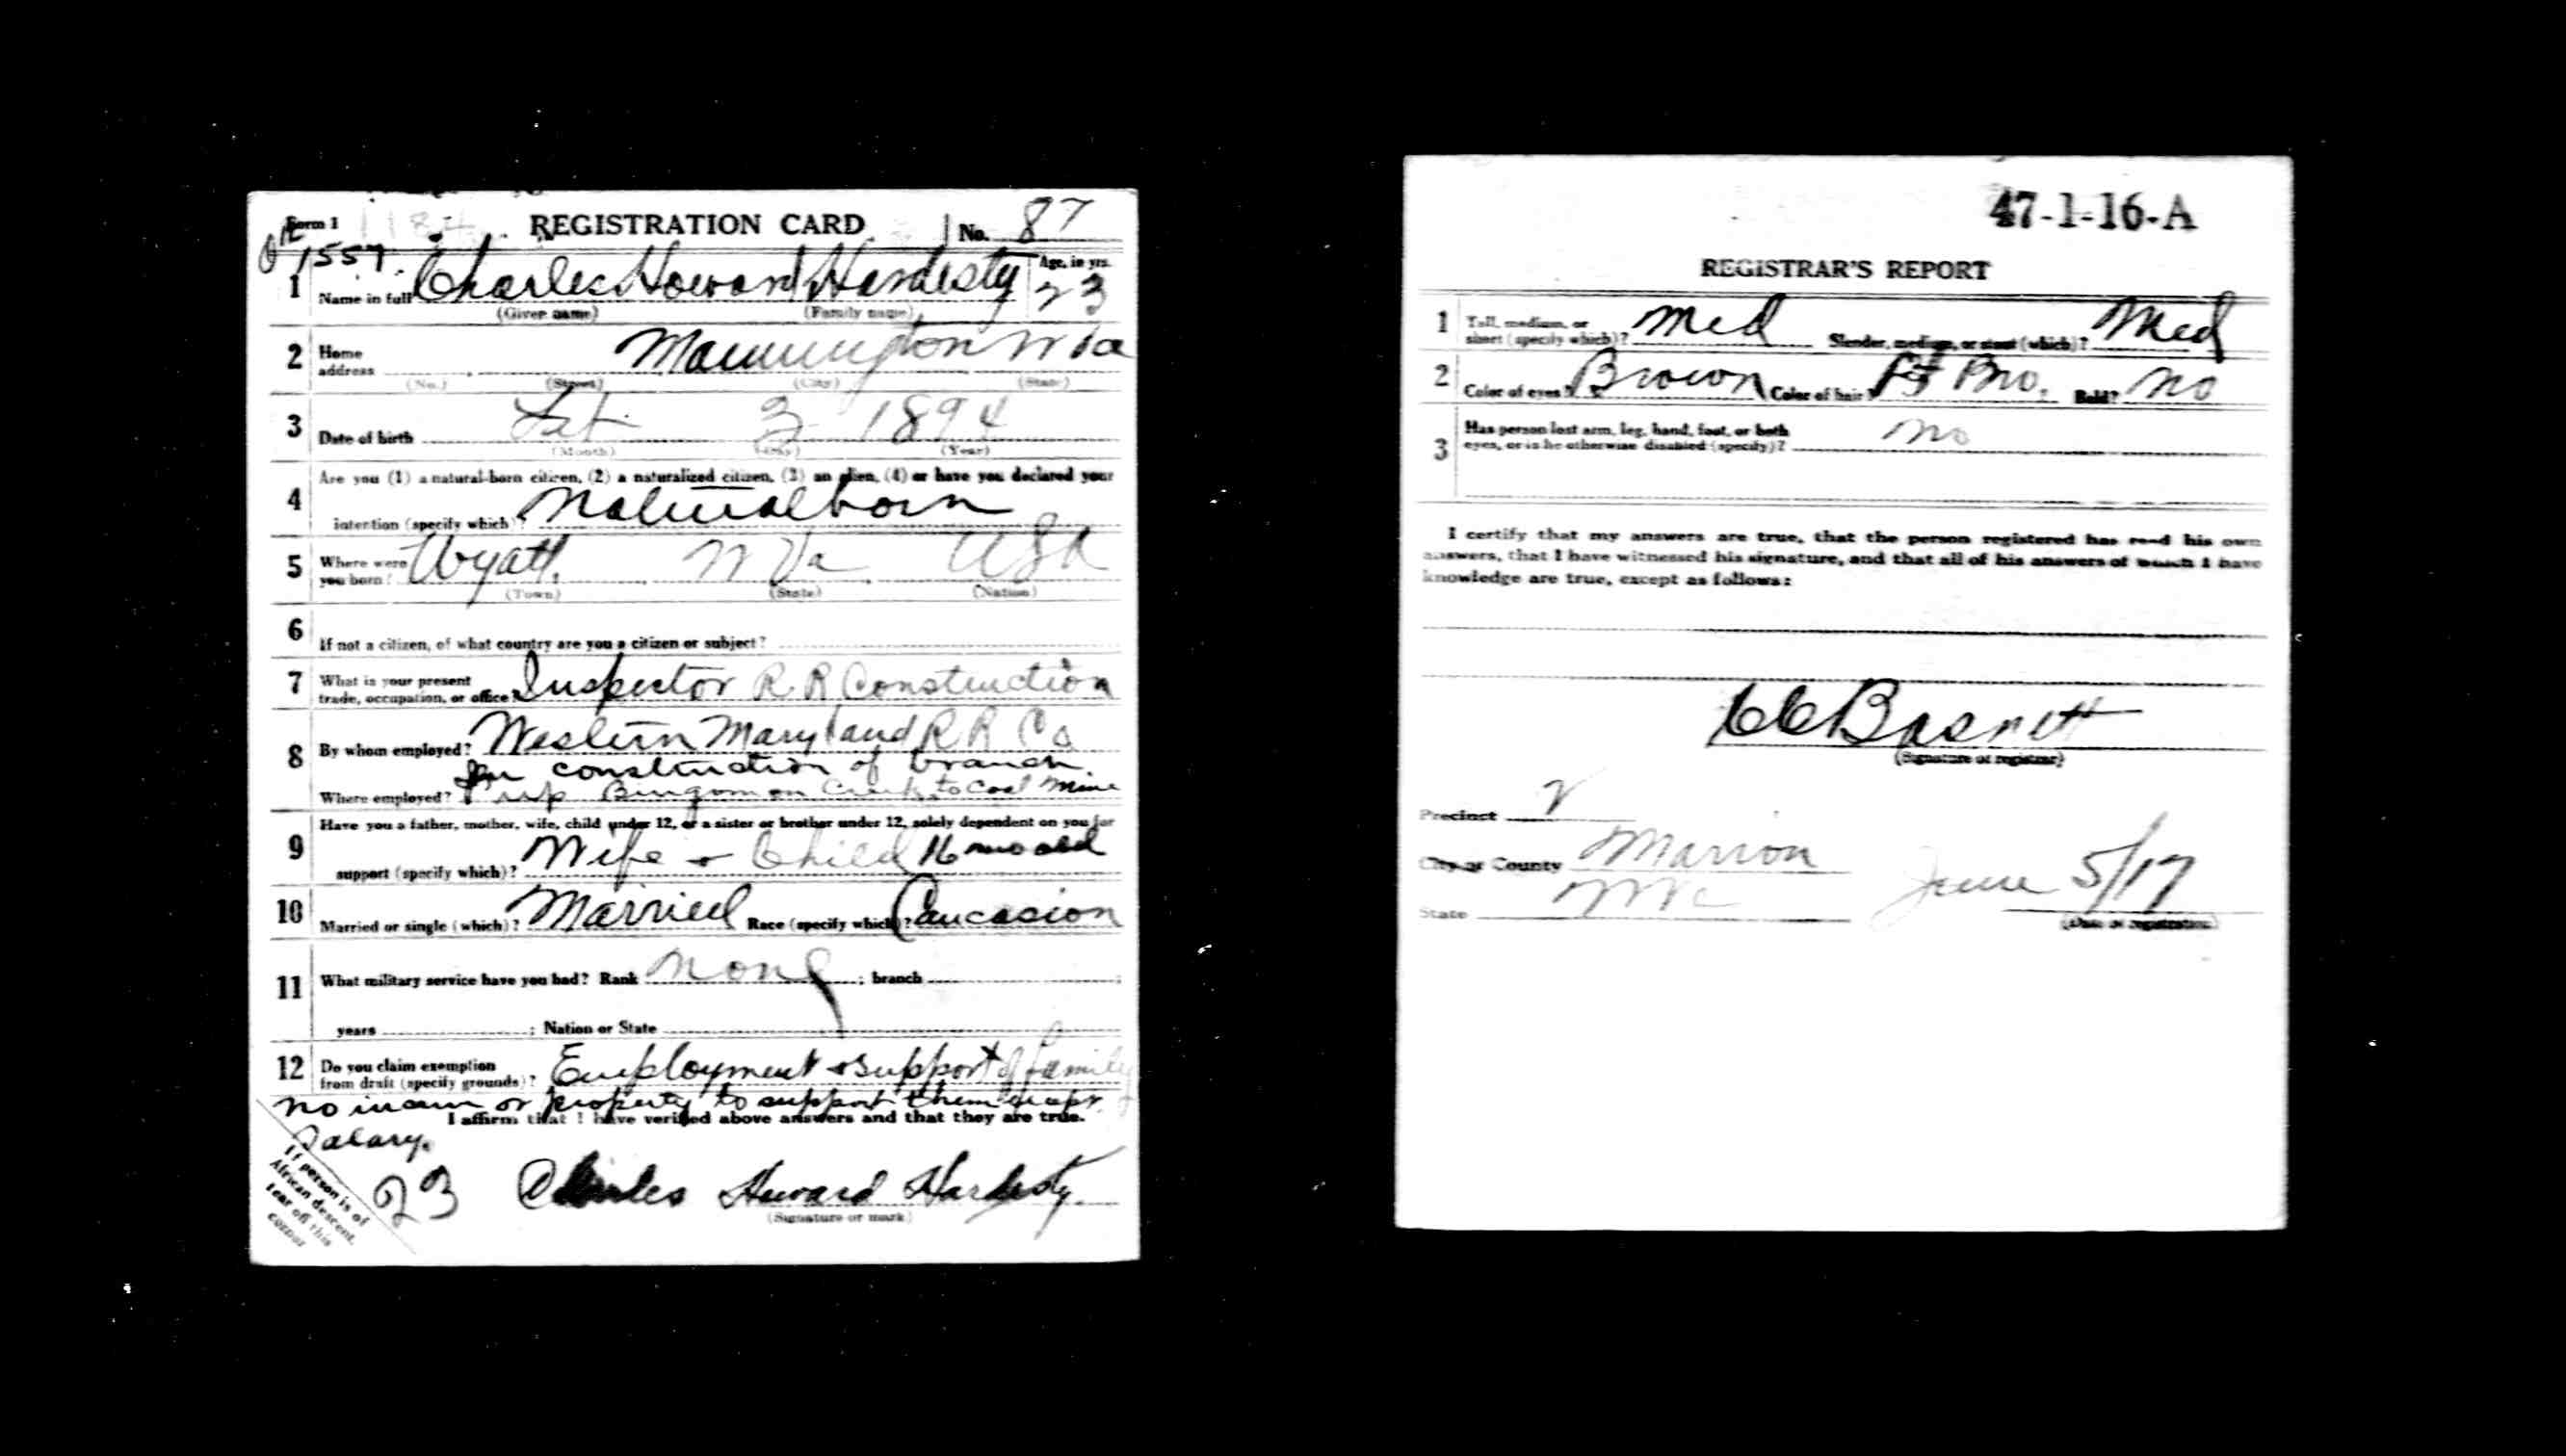 Form 1
REGISTRATION CARD
No. 87
1557
1 Name in full Charles Howard Hardesty Age, in yrs. 23
(Given name) (Family name)
2 Home address Mannington W Va
(No.) (Street) (City) (State)
3 Date of birth 3 1894
(Month) (Day) (Year)
4 Are you (1) a natural-born citizen, (2) a naturalized citizen, (3) an alien, (4) or have you declared your
intention (specify which)? Natural born
5 Where were you born? Wyatt, W Va USA
(Town) (State) (Nation)
6 If not a citizen, of what country are you a citizen or subject?
7 What is your present trade, occupation, or office? Inspector R R Construction
8 By whom employed? Western Maryland R R Co
construction of branch
Where employed? up Bingamon Creek to Coal Mine
9 Have you a father, mother, wife, child under 12, or a sister or brother under 12, solely dependent on you for
support (specify which)? Wife + Child 16 mo old
10 Married or single (which)? Married Race (specify which)? Caucasion
11 What military service have you had? Rank none ; branch ;
years ; Nation or State
12 Do you claim exemption from draft (specify grounds)? Employment + support of family
no incom or property to support them except
I affirm that I have verified above answers and that they are true.
Salary.
If person is of
African descent,
tear off this
corner
23
Charles Howard Hardesty
(Signature or mark)
47-1-16-A
REGISTRAR'S REPORT
1 Tall, medium, or short (specify which)? Med Slender, medium, or stout (which)? Med
2 Color of eyes? Brown Color of hair? Bro. Bald? no
3 Has person lost arm, leg, hand, foot, or both
eyes, or is he otherwise disabled (specify)? no
I certify that my answers are true, that the person registered has read his own
answers, that I have witnessed his signature, and that all of his answers of which I have
knowledge are true, except as follows:
CC Basnett
(Signature of registrar)
Precinct
City or County Marion
State W Va June 5/17
(Date of registration)